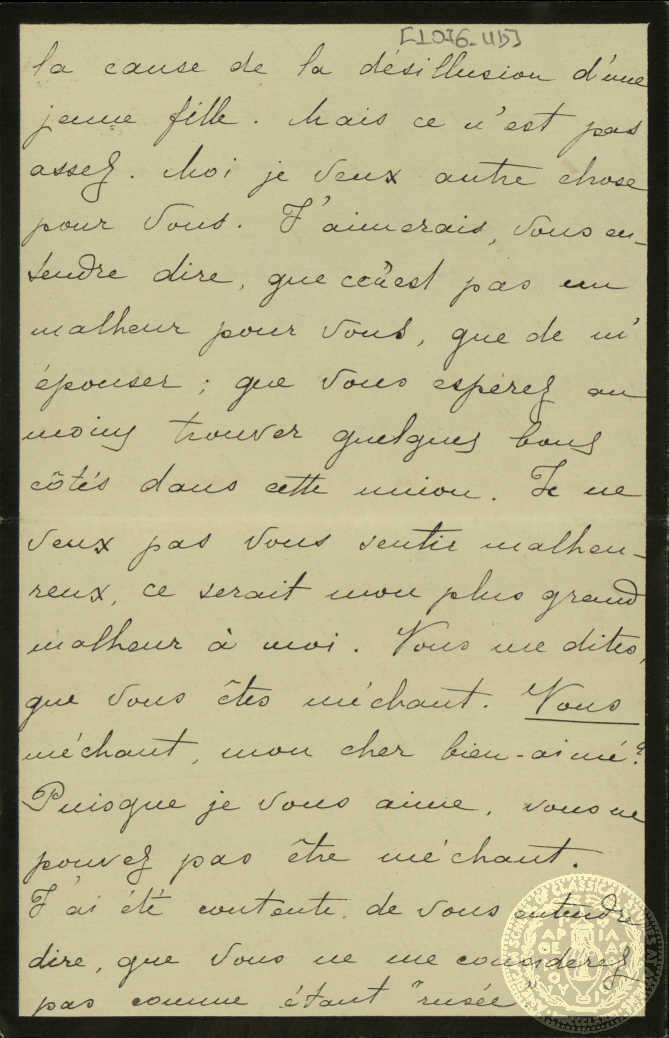 [1076-115]
la cause de la désillusion d'une
jeune fille. Mais ce n'est pas
assez. Moi je veux autre chose
pour vous. J'aimerais, vous en-
tendre dire, que ce n'est pas un
malheur pour vous, que de m'
épouser; que vous espérez au
moins trouver quelques bons
côtés dans cette union. Je ne
veux pas vous sentir malheu-
reux, ce serait mon plus grand
malheur à moi. Vous me dites,
que vous êtes méchant. Vous
méchant, mon cher bien-aimé?
Puisque je vous aime, vous ne
pouvez pas être méchant.
J'ai été contente, de vous entendre
dire, que vous ne me considerez
pas comme étant "rusée"